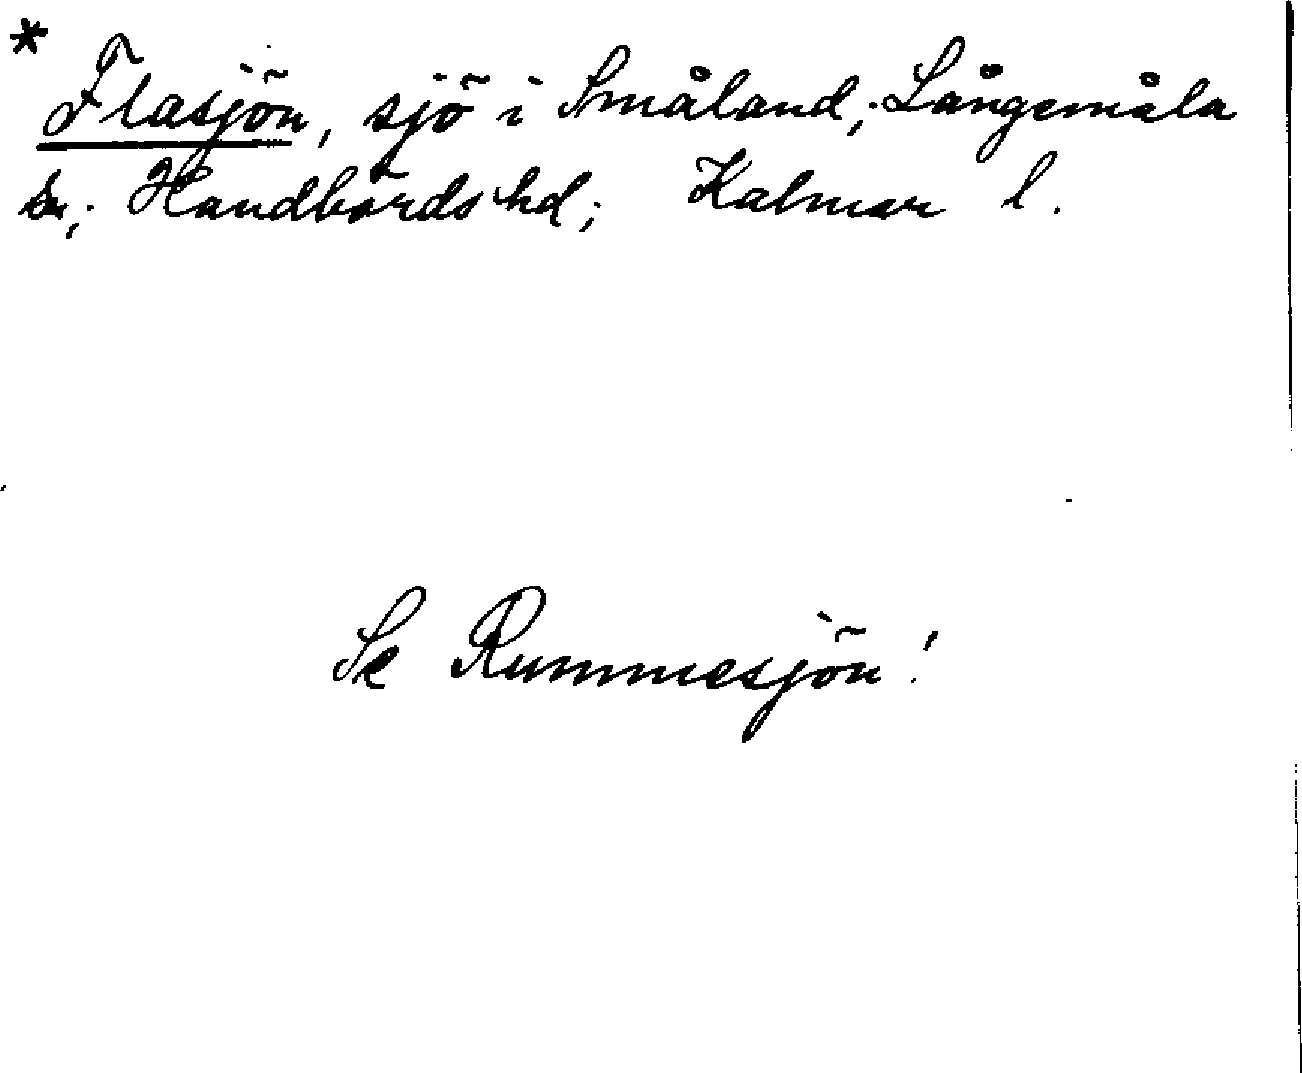 * Flasjön, sjö i Småland; Långemåla
sn; Handbörds hd; Kalmar l.
Se Rummesjön!